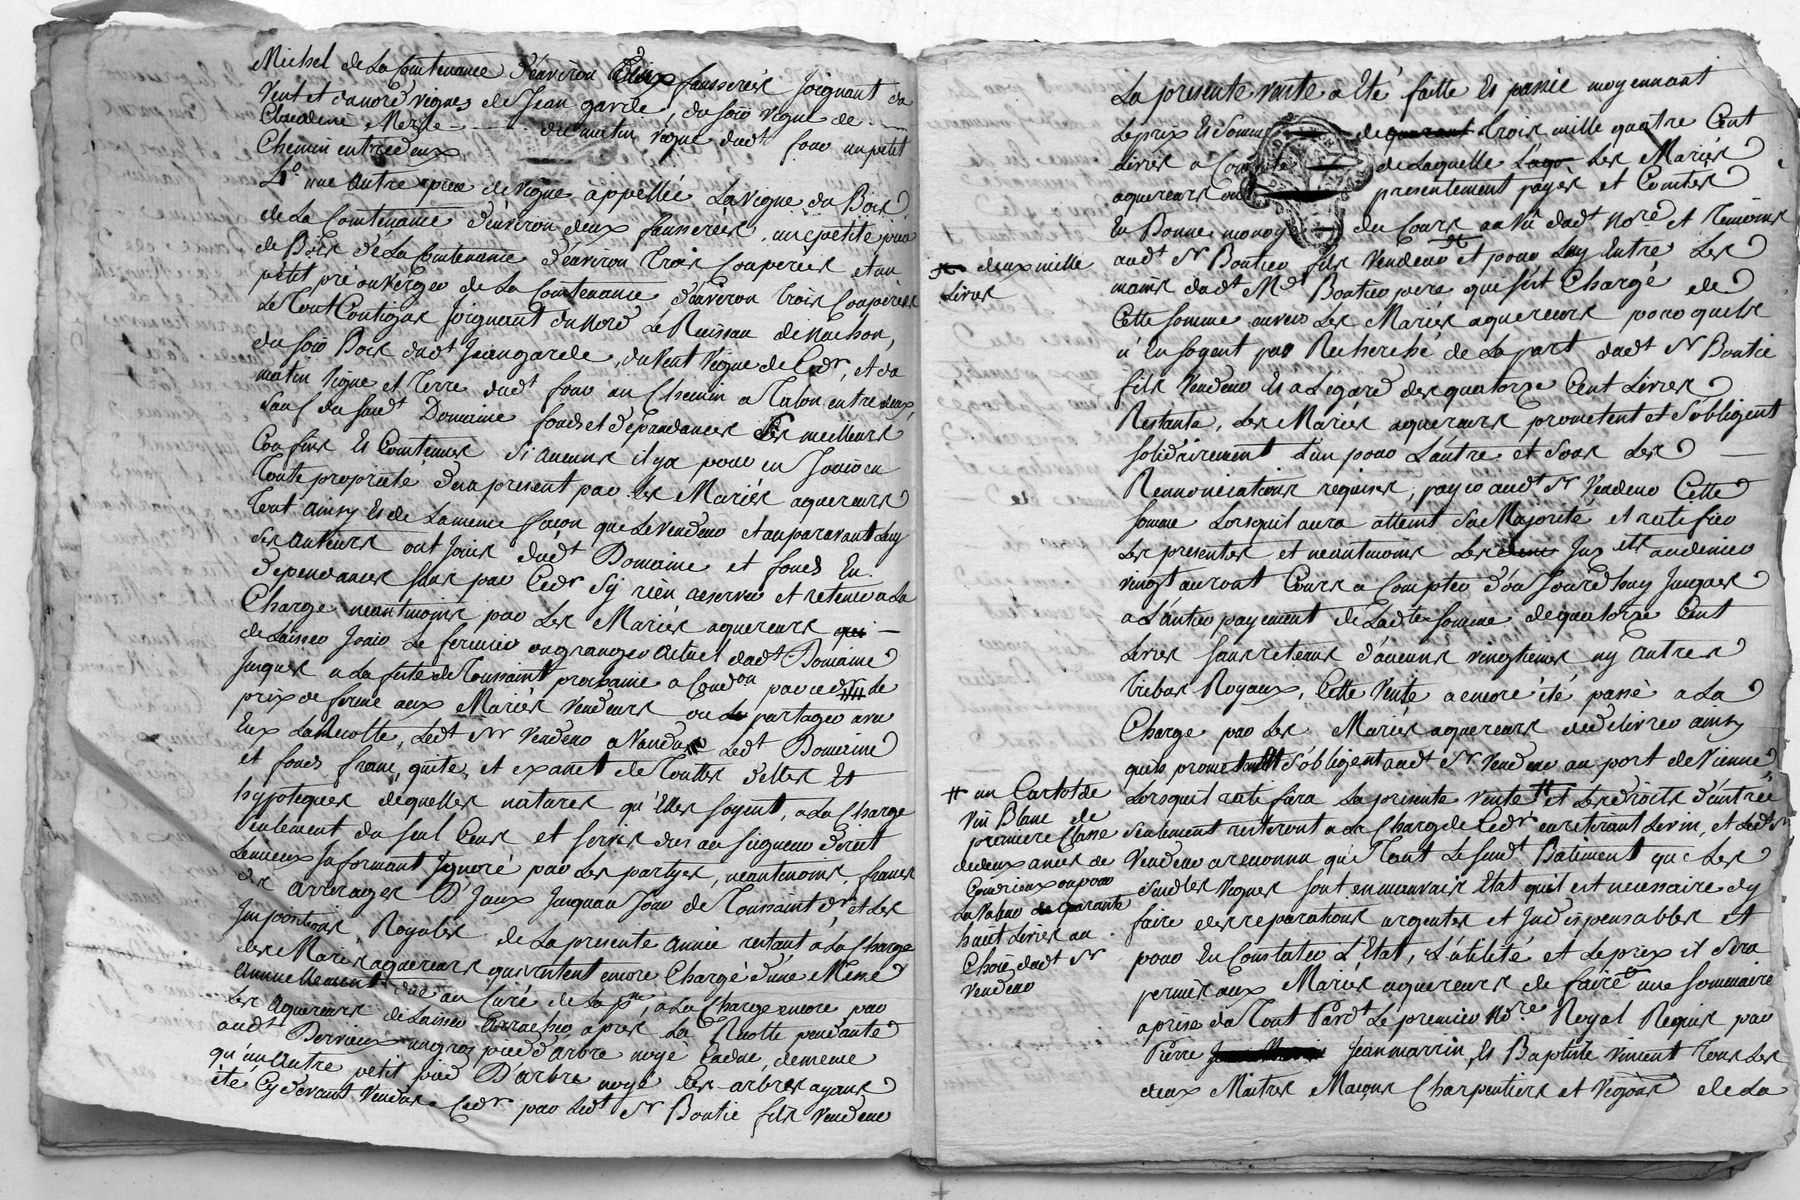 Michel de La Contenance d'environ dix fausserées Joignant du
vent et du nord vignes de Jean garde, du soir vigne de
Claudine Merle du matin vigne dud.t four un petit
Chemin entredeux
4.o une autre piece de vigne appellée La vigne du Bois
de La Contenance d'environ deux fausserées, une petite piece
de Bois de La Contenance d'environ trois Couperées et un
petit pré ou verger de La Contenance d'environ trois Couperées
Le tout Contigus joignant du nord Le Ruisseau de
du soir Bois dud.t Jean garde, du vent vigne de Cedr, et du
matin vigne et Terre dud.t four un Chemin a Talon entredeux,
Sauf du susd.t Domaine fonds et dependances Les meilleurs
Confins Et Contenues Si aucunes il y a, pour en Jouir en
Toute proprieté d'ez present par les Mariés aquereurs
Tout ainsy Et de La meme façon que Le vendeur et auparavant Luy
Ses auteurs ont Jouis dud.t Domaine et fonds En
dependances sans par Cedr s'y rien reserver et retenir a La
Charge neantmoins par Les Mariés aquereurs
de Laisser Jouir Le fermier ou granger actuel dud.t Domaine
Jusques a La fete de Toussaint prochaine a Cond.on par cedr de
prix de ferme aux Mariés vendeurs ou Le partager avec
Eux La Recolte, Led.t Sr vendeur a vendu Led.t Domaine
et fonds franc, quite, et exanet de Toutes dettes Et
hypoteques dequelles natures qu'Elles soyent, a La Charge
seulement du seul Cens et servis dus au seigneur direct
Lemieux Informant Ignoré par Les partyes, neantmoins francs
des arrerages D'Iceux Jusquau Jour de Toussaint dr et Les
Impositions Royales de La presente année restant a La Charge
des Mariés aquereurs qui restent encore Chargé d'une Messe
annuellement due au Curé de La P.sse, a La Charge encore par
Les aquereurs de Laisser arracher apres La Recolte pendante
aud.t Dervieux un gros pied d'arbre noyé Cadue, dememe
qu'un autre petit pied D'arbre noyé Les arbres ayant
été Cy devant vendus a Cedr par Led.t Sr Boutie fils vendeur
La presente vente a Eté faitte Et passée moyennant
Le prix Et Somme de trois mille quatre Cent
Livres a Compte de Laquelle Les Mariés
aquereurs ont presentement payés et Comtés
En Bonne monoye du Cours au vu dud.t No.re et Temoins
aud.t Sr Boutieu fils vendeur et pour Luy Entre Les
mains dud.t M.d.t Boutieu pere qui s'est Chargé de
Cette somme envers Les Mariés aquereurs pour quils
n'En soyent pas Recherché de La part dud.t Sr Boutie
fils vendeur Et a L'egard des quatorze Cent Livres
Restante, Les Mariés aquereurs promettent et S'obligent
solidairement L'un pour L'autre et sous Les
Rennonciations requises, payer aud.t Sr vendeur Cette
somme Lorsquil aura atteint Sa Majorité et ratifier
Les presentes et neantmoins Les Int.ets au denier
vingt auront Cours a Compter d'au Jourd'huy Jusques
a L'entier payement de Lad.te somme de quatorze Cent
Livres sans retenue d'aucuns vingtiemes ny autres
tributs Royaux, Cette vente a encore été passé a La
Charge par Les Mariés aquereurs de delivrer ainsy
quils promettent Et s'obligent aud.t Sr vendeur au port de Vienne
Lorsquil ratifiera La presente vente # et Les droits d'entrée
seulement resteront a La Charge de Cedr en retirant Le vin, et Led.t Sr
vendeur a reconnu que Tant Le susd.t Batiment que Les
susd.tes vignes sont en mauvais Etat quil est necessaire d'y
faire des reparations urgentes et Indispensables Et
pour En Constater L'Etat, L'utilité et Le prix il sera
permis aux Mariés aquereurs de faire une sommaire
aprise du Tout Pard.t Le premier No.re Royal Requis par
Pierre Jean marrin, Et Baptiste vincent Tous Les
deux Maitres Maçons Charpentiers et vignerons de La
deux mille
Livres
# un Cartot de
vin Blanc de
premiere Classe
de deux annés de
Condrieux ou pour
La valeur de quarante
huit Livres au
Choix dud.t Sr
vendeur